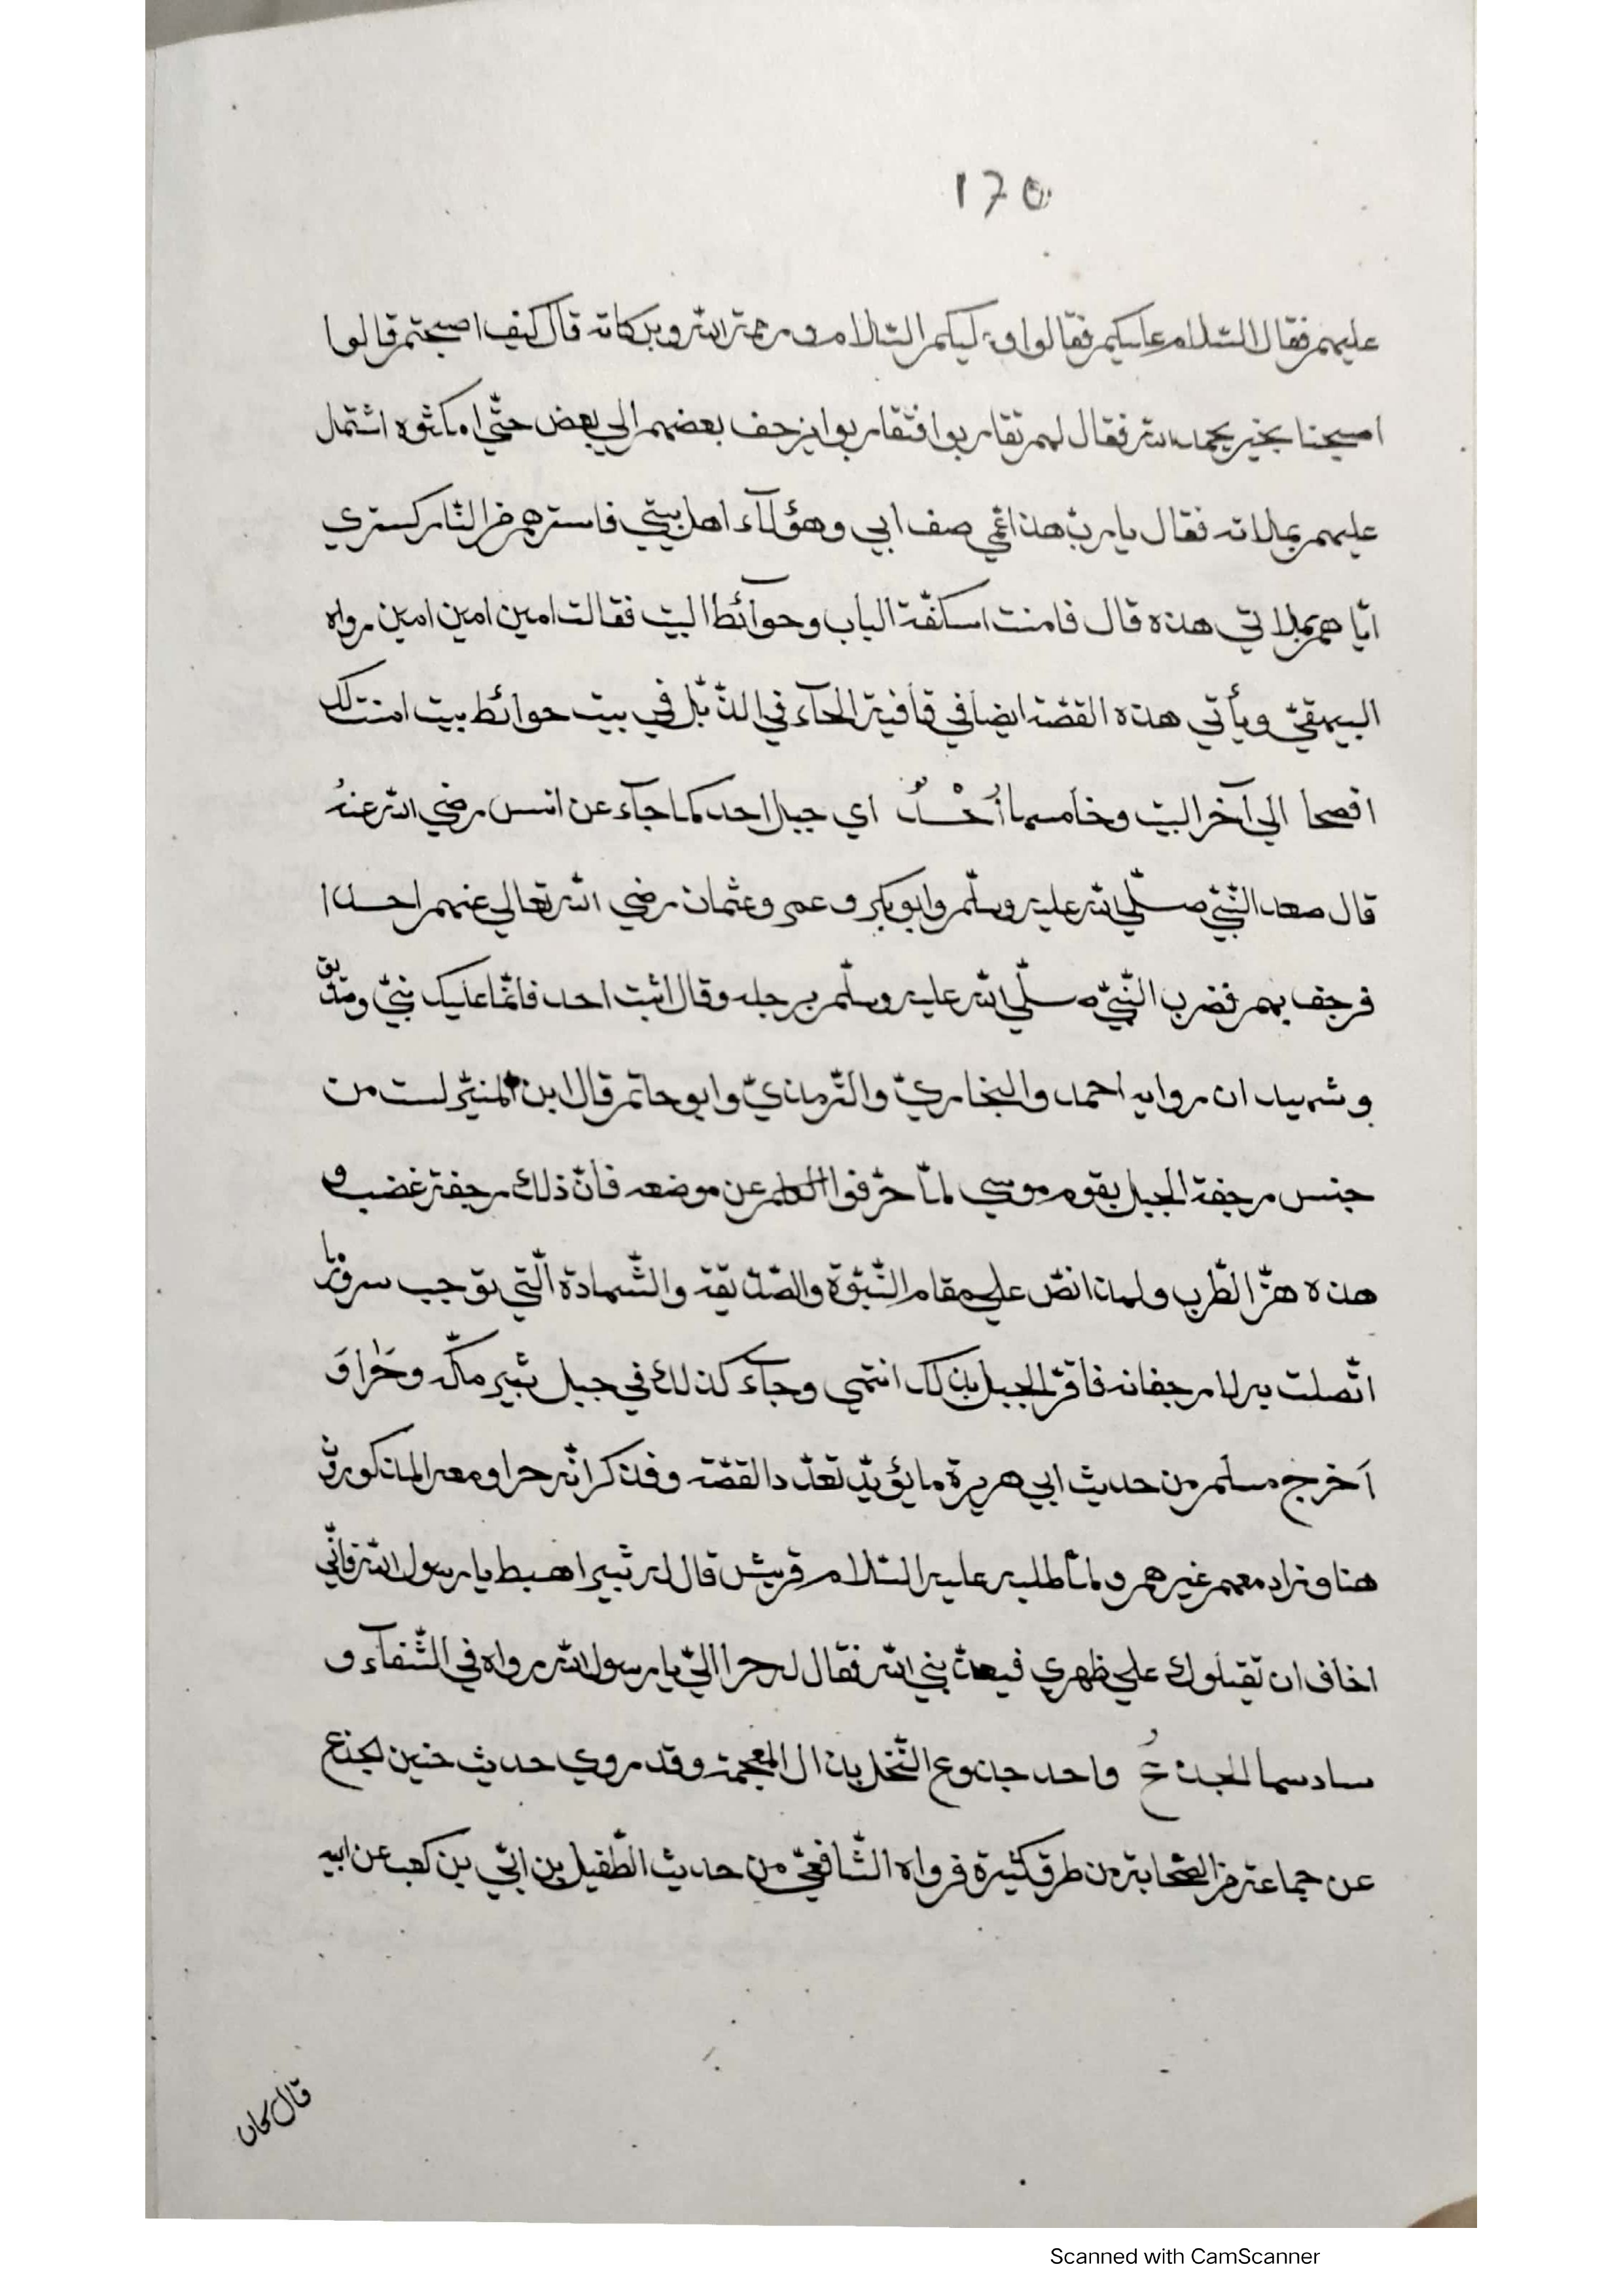 170
عليهم فقال السّلام عليكم فقالوا وعليكم السّلام ورحمة الله وبركاته قال كيف اصبحتم قالوا
اصبحنا بخير بحمد الله فقال لهم تقاربوا فتقاربوا يزحف بعضهم الي بعض حتّي امكنوه اشتمل
عليهم بملاته فقال يا ربّ هذا عمّي صف ابي وهؤلآء اهل بيتي فاسترهم من النّار كستري
ايّاهم بملاتي هذه قال فامنت اسكفّة الباب وحوآئط البيت فقالت امين امين امين رواه
البيهقيّ ويأتي هذه القصّة ايضا في قافية الحآء في الذّيل في بيت حوائط بيت امنت لك
افصحا الي آخر البيت وخامسها أُحْدٌ اي جبل احد كما جآء عن انس رضي الله عنهُ
قال صعد النّبيّ صلّي الله عليه وسلّم وابو بكر وعمر وعثمان رضي الله تعالي عنهم احدا
فرجف بهم فضرب النّبيّ صلّي الله عليه وسلّم برجله وقال اثبت احد فانّما عليك نبيّ وصدّيق
وشهيدان روايه احمد والبخاريّ والتّرمذيّ وابو حاتم قال ابن المنيّر لست من
جنس رجفة الجبل بقوم موسي لمّا حرّفوا الكلم عن موضعه فانّ ذلك رجفة غضب و
هذه هزّ الطّرب ولهذا نصّ علي مقام النّبوّة والصّدّيقة والشّهادة الّتي توجب سرورا
اتّصلت به لا رجفانه فاقرّ الجبل بذلك انتهي وجآء كذلك في جبل ثبير مكّه وحَرا وَ
اَخرج مسلم من حديث ابي هريرة ما يؤيّد تعدّد القصّة وفذكر انّه حرا ومعه المذكورون
هنا وزاد معهم غيرهم ولمّا طلبه عليه السّلام قريش قال له ثبير اهبط يا رسول الله فانّي
اخاف ان تقتلوك علي ظهري فيعذّبني الله فقال له حرا اليّ يا رسول الله رواه في الشّفآء و
سادسها الجذعُ واحد جذوع النّخل بذال المعجمة وقد روي حديث حنين لجذع
عن جماعة من الصّحابة من طرق كثيرة فرواه الشّافعيّ من حديث الطّفيل بن ابيّ بن كعب عن ابيه
قال كان
Scanned with CamScanner